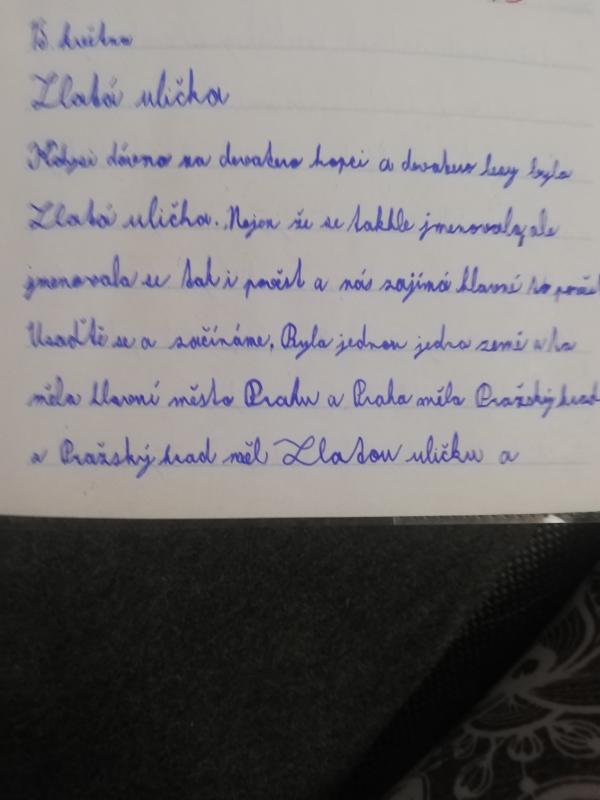 května
Zlatá ulička
Kdysi dávno na devatero kopci a devatero lesy byla
Zlatá ulička. Nejen že se takhle jmenovala, ale
jmenovala se tak i pověst a nás zajímá hlavní ta
Usaďtě se a začínáme. Byla jednou jedna země a ta
měla hlavní město Prahu a Praha měla Pražský hrad
a Pražský hrad měl Zlatou uličku a